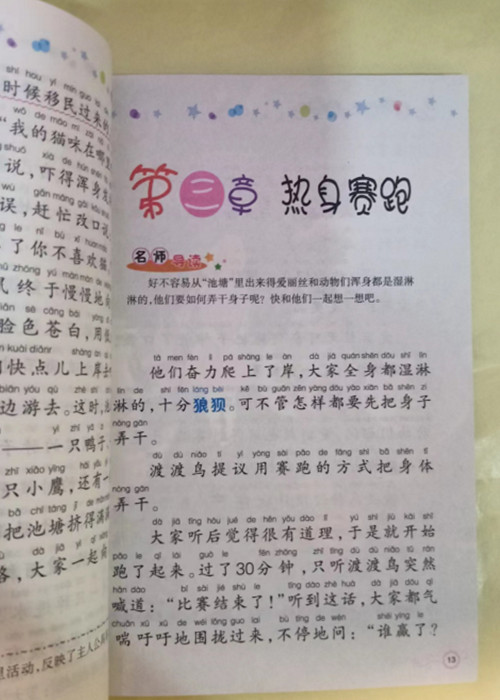 时候移民过来的
“我的猫咪在哪里
说，吓得浑身发
误，赶忙改口说
了你不喜欢猫
终于慢慢地
脸色苍白，用
快点儿上岸
边游去。这时，池
一只鸭子、
只小鹰，还有一
把池塘挤得满满
大家一起向
活动，反映了主人公
第三章 热身赛跑
名师导读
好不容易从“池塘”里出来得爱丽丝和动物们浑身都是湿淋
淋的，他们要如何弄干身子呢？快和他们一起想一想吧。
tā men fèn lì pá shàng le àn dà jiā quán shēn dōu shī lín
他们奋力爬上了岸，大家全身都湿淋
lín de shí fēn láng bèi kě bù guǎn zěn yàng dōu yào xiān bǎ shēn zi
淋的，十分狼狈。可不管怎样都要先把身子
nòng gān
弄干。
dù dù niǎo tí yì yòng sài pǎo de fāng shì bǎ shēn tǐ
渡渡鸟提议用赛跑的方式把身体
nòng gān
弄干。
dà jiā tīng hòu jué de hěn yǒu dào lǐ yú shì jiù kāi shǐ
大家听后觉得很有道理，于是就开始
pǎo le qǐ lái guò le fēn zhōng zhǐ tīng dù dù niǎo tū rán
跑了起来。过了30分钟，只听渡渡鸟突然
hǎn dào bǐ sài jié shù le tīng dào zhè huà dà jiā dōu qì
喊道：“比赛结束了！”听到这话，大家都气
chuǎn xū xū de wéi lǒng guò lái bù tíng de wèn shéi yíng le
喘吁吁地围拢过来，不停地问：“谁赢了？
13